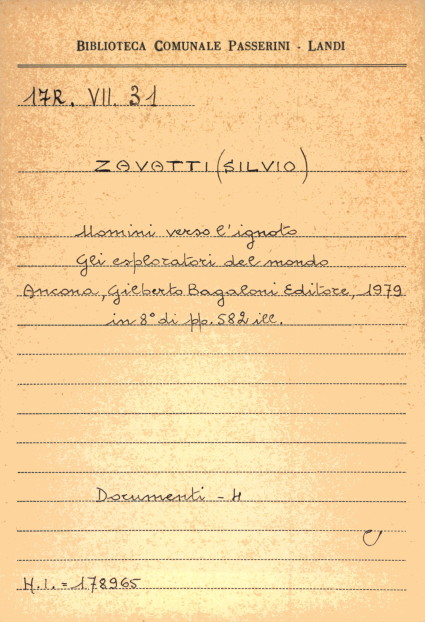 BIBLIOTECA COMUNALE PASSERINI - LANDI
17R. VII. 31
ZAVATTI (SILVIO)
Uomini verso l'ignoto
Gli esploratori del mondo
Ancona, Gilberto Bagaloni Editore, 1979
in 8° di pp. 582 ill.
Documenti - 4
N.I. = 178965